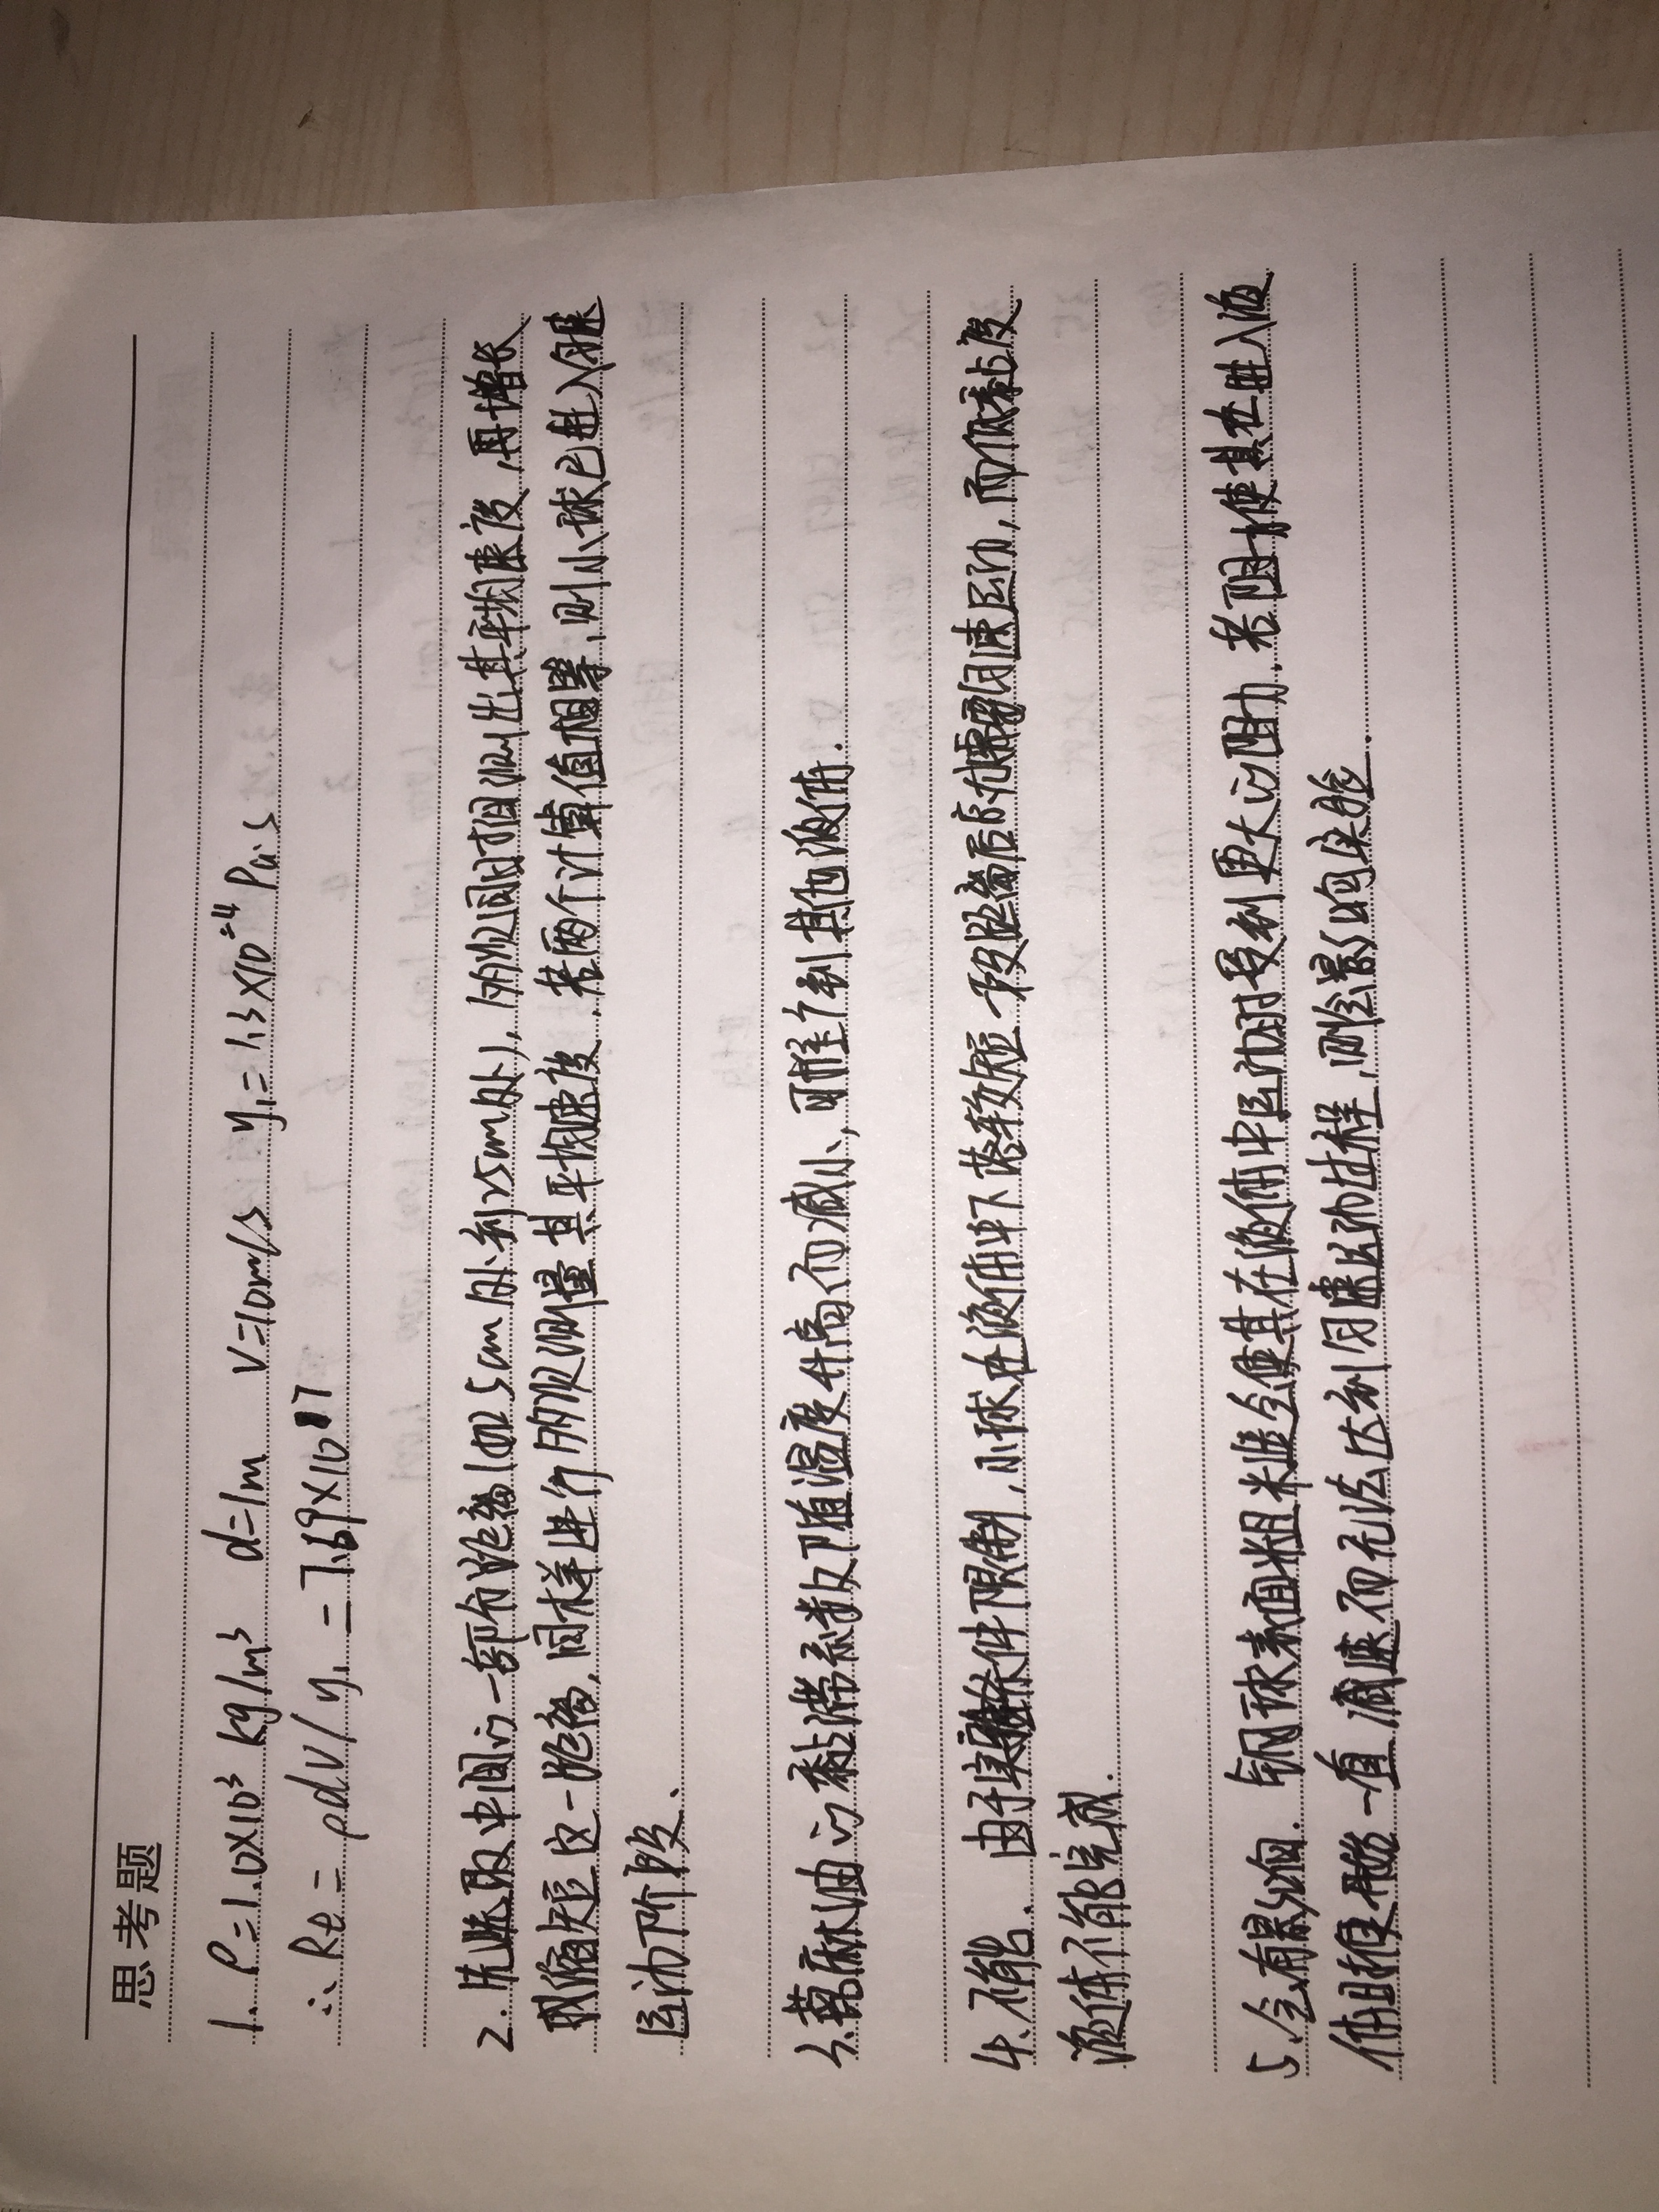 思考题
1. ρ=1.0×10³ kg/m³ d=1m v=10m/s η₁=1.3×10⁻⁴ Pa·s
∴ Re = ρdv/η₁ = 7.69×10⁷
2. 先选取中间的一部分距离(如5cm处到25cm处),的及时间测出其平均速度,再增长
或缩短这一距离,同样进行的及测量其平均速度.若两个计算值相等,则小球已进入匀速
运动阶段.
3.蓖麻油的黏滞系数随温度升高而减小,可推广到其他液体.
4.不能. 由于实验条件限制,小球在液体中下落较短一段距离后需匀速运动,而低黏度
液体不能完成.
5.会有影响.钢球表面粗糙会使其在液体中运动时受到更大的阻力.若阻力使其在进入液
体时候一直减速而无法达到匀速运动过程,则会影响实验.